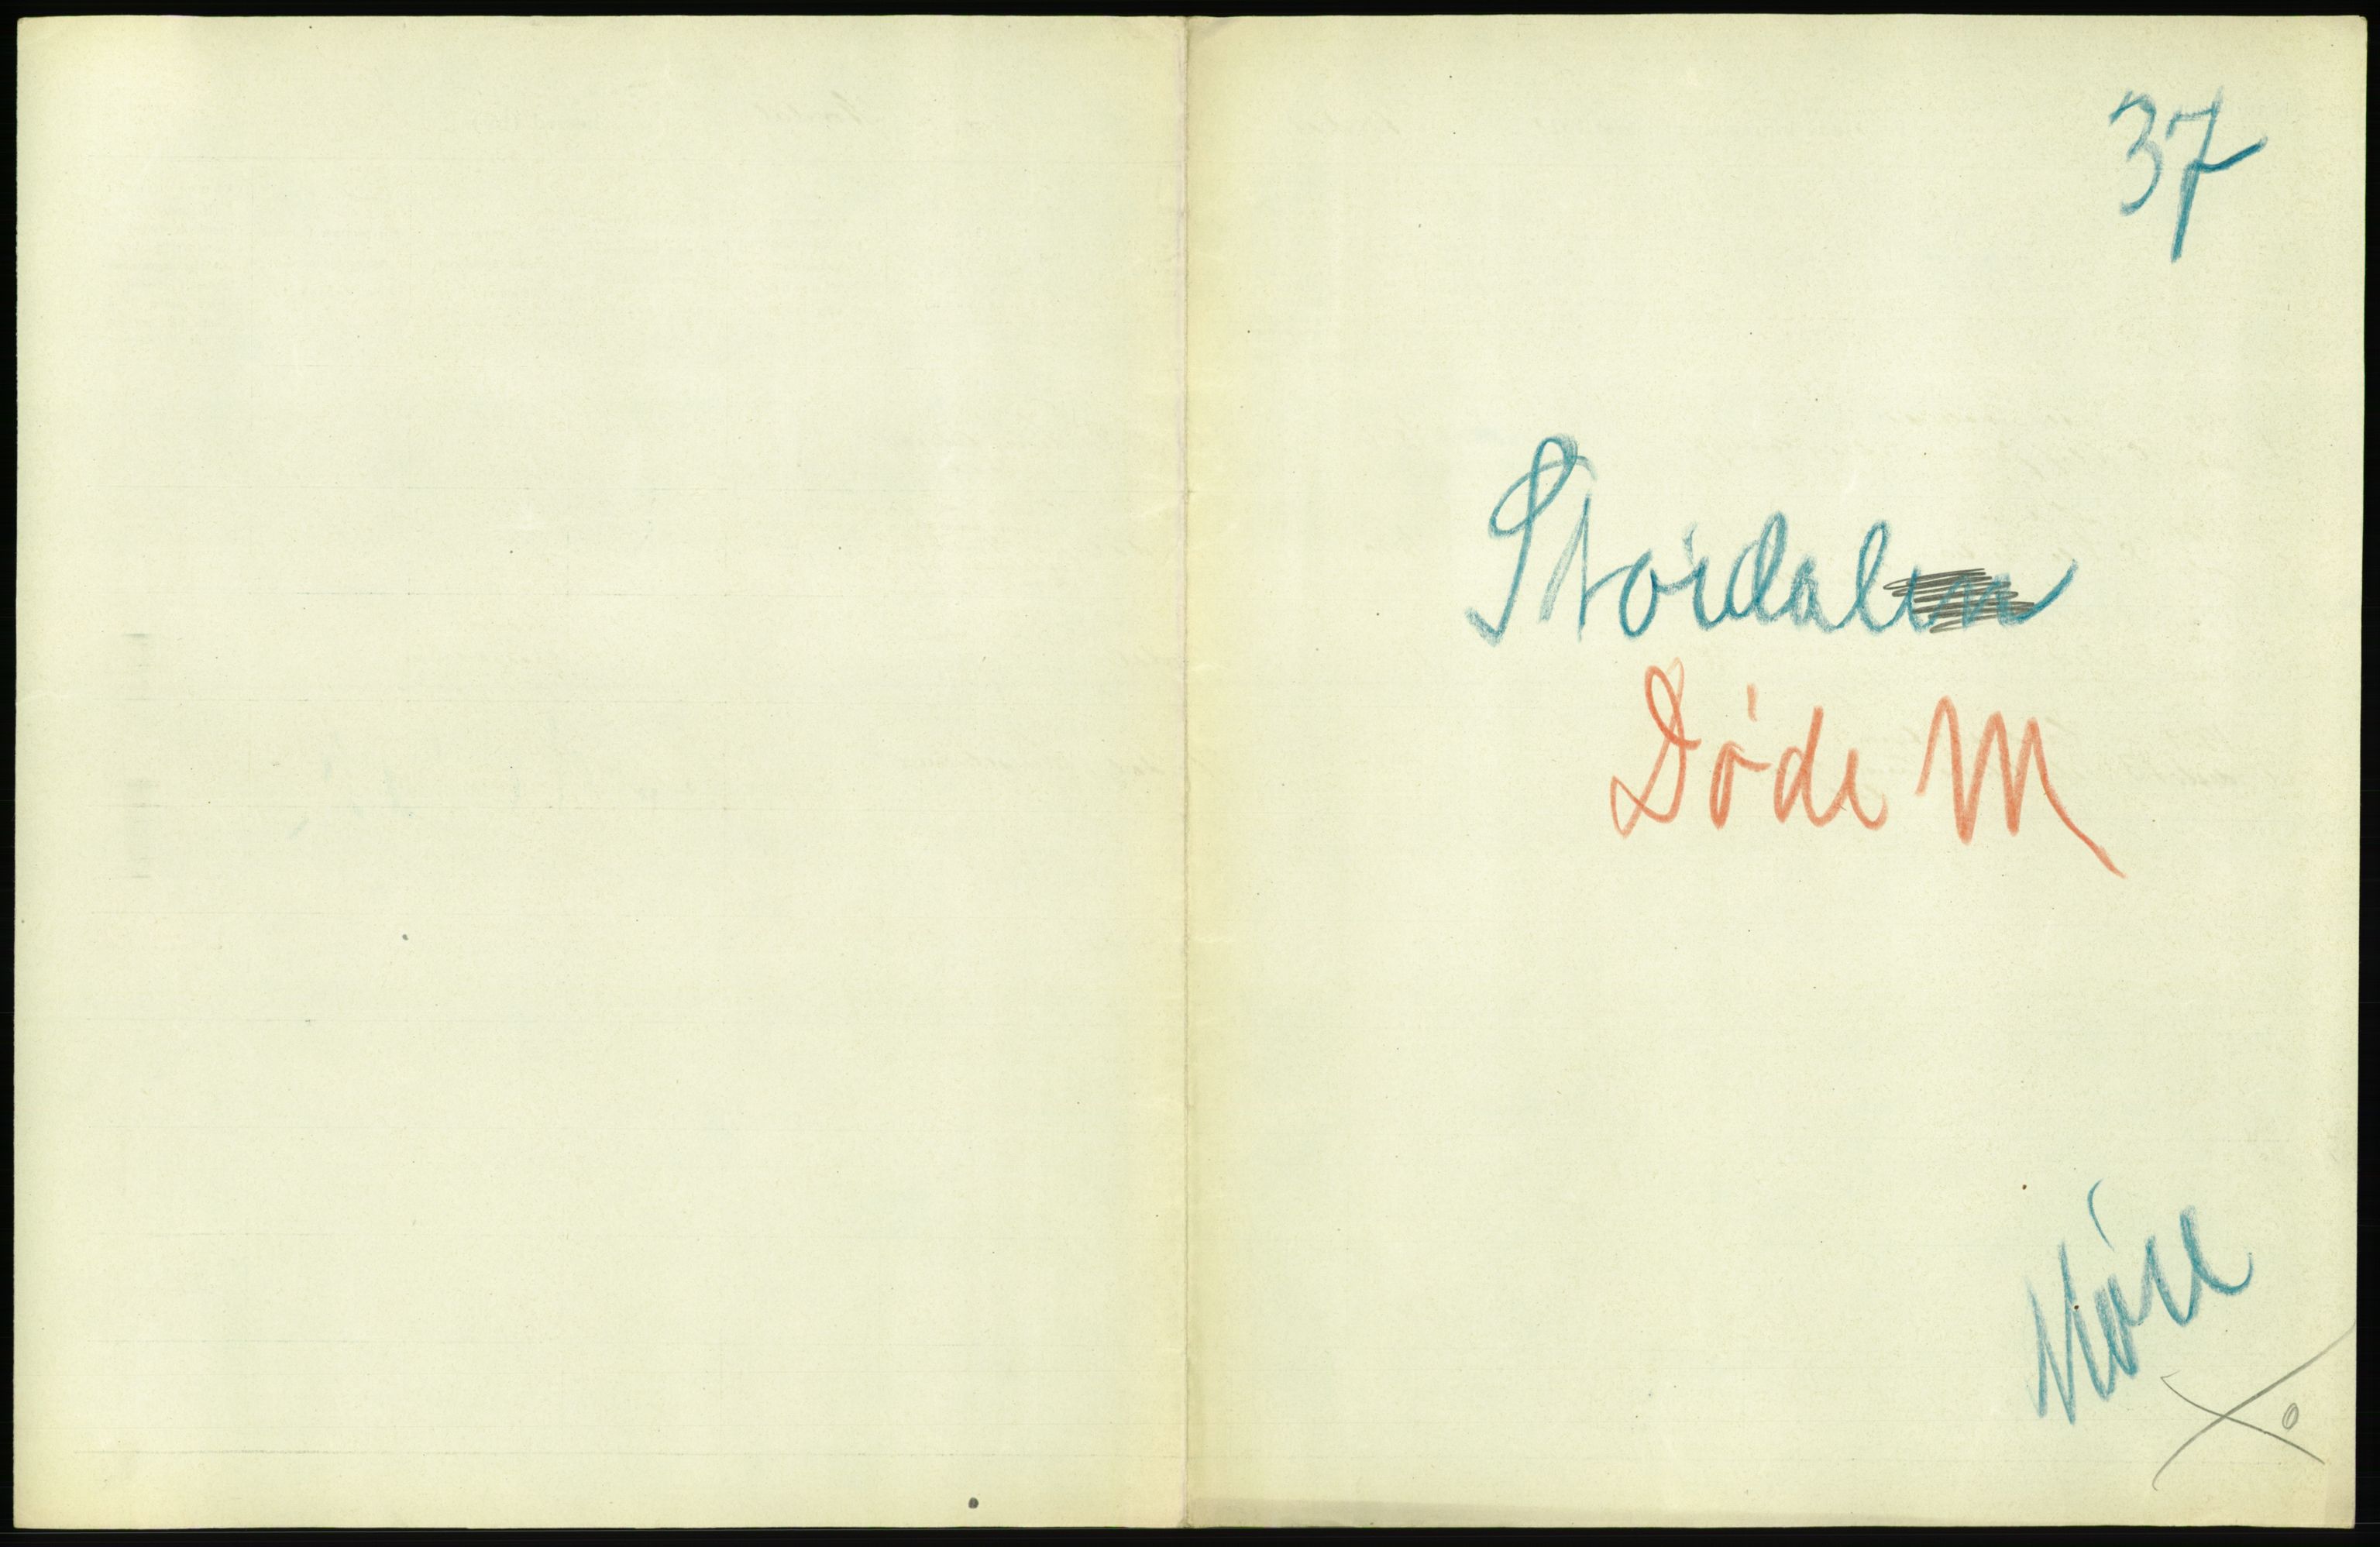 37
Stordalen
Døde M
Møre